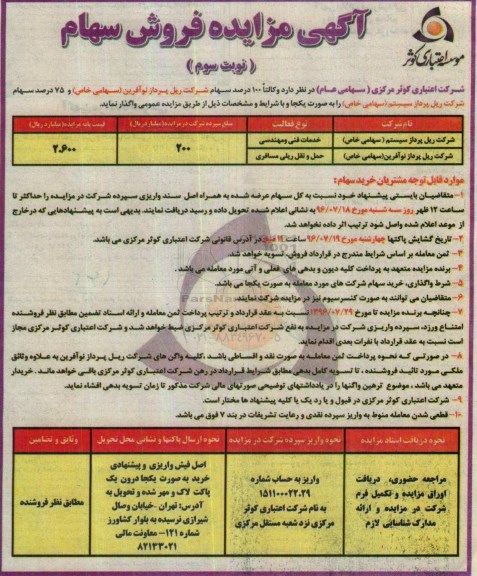 آگهی مزایده فروش سهام
( نوبت سوم )
موسسه اعتباری کوثر
شرکت اعتباری کوثر مرکزی ( سهامی عام) در نظر دارد وکالتاً ۱۰۰ درصد سهام شرکت ریل پرداز نوآفرین (سهامی خاص) و ۷۵ درصد سهام
شرکت ریل پرداز سیستم ( سهامی خاص) را به صورت یکجا و با شرایط و مشخصات ذیل از طریق مزایده عمومی واگذار نماید.
نام شرکت نوع فعالیت مبلغ سپرده شرکت در مزایده ( میلیارد ریال) قیمت پایه مزایده( میلیارد ریال)
شرکت ریل پرداز سیستم ( سهامی خاص) خدمات فنی ومهندسی ۲۰۰ ۲،۶۰۰
شرکت ریل پرداز نوآفرین(سهامی خاص) حمل و نقل ریلی مسافری
موارد قابل توجه مشتریان خرید سهام:
۱- متقاضیان بایستی پیشنهاد خود نسبت به کل سهام عرضه شده به همراه اصل سند واریزی سپرده شرکت در مزایده را حداکثر تا
ساعت ۱۲ ظهر روز سه شنبه مورخ ۹۶/۰۷/۱۸ به نشانی اعلام شده تحویل داده و رسید دریافت نمایند. بدیهی است به پیشنهادهایی که در خارج
از موعد اعلام شده واصل شود ترتیب اثر داده نخواهد شد.
۲- تاریخ گشایش پاکتها چهارشنبه مورخ ۹۶/۰۷/۱۹ ساعت در آدرس قانونی شرکت اعتباری کوثر مرکزی می باشد.
۳- ثمن معامله بر اساس شرایط مندرج در قرارداد فروش، تسویه خواهد شد.
۴- برنده مزایده متعهد به پرداخت کلیه دیون و بدهی های فعلی و آتی مورد معامله می باشد.
۵- شرط واگذاری، خرید سهام شرکت های مورد معامله به صورت یکجا می باشد.
۶- متقاضیان می توانند به صورت کنسرسیوم نیز در مزایده شرکت نمایند.
۷- چنانچه برنده مزایده تا مورخ ۱۳۹۶/۰۷/۲۹ نسبت به عقد قرارداد و ترتیب پرداخت ثمن معامله و ارائه اسناد تضمین مطابق نظر فروشنده
امتناع ورزد، سپرده واریزی شرکت در مزایده به نفع شرکت اعتباری کوثر مرکزی ضبط خواهد شد و شرکت اعتباری کوثر مرکزی مجاز
است نسبت به عقد قرارداد با نفرات بعدی اقدام نماید.
۸- در صورتی که نحوه پرداخت ثمن معامله به صورت نقد و اقساطی باشد ،کلیه واگن های شرکت ریل پرداز نوآفرین به علاوه وثائق
ملکی مورد تائید فروشنده ، تا تسویه کامل بدهی مطابق شرایط قرارداد در رهن شرکت اعتباری کوثر مرکزی باقی خواهد ماند. خریدار
متعهد می باشد ، موضوع ترهین واگنها را در یادداشتهای توضیحی صورتهای مالی شرکت مذکور تا زمان تسویه بدهی افشاء نماید.
۹- شرکت اعتباری کوثر مرکزی در قبول و یا رد یک یا کلیه پیشنهاد ها مختار است.
۱۰- قطعی شدن معامله منوط به واریز سپرده نقدی و رعایت تشریفات در بند ۷ فوق می باشد.
نحوه دریافت اسناد مزایده نحوه واریز سپرده شرکت در مزایده نحوه ارسال پاکتها و نشانی محل تحویل وثایق و تضامین
مراجعه حضوری، دریافت اوراق مزایده و تکمیل فرم شرکت در مزایده و ارائه مدارک شناسایی لازم
واریز به حساب شماره ۱۵۱۱۰۰۰۲۲.۲۹ به نام شرکت اعتباری کوثر مرکزی نزد شعبه مستقل مرکزی
اصل فیش واریزی و پیشنهادی خرید به صورت یکجا درون یک پاکت لاک و مهر شده و تحویل به آدرس: تهران -خیابان وصال شیرازی نرسیده به بلوار کشاورز شماره ۱۲۱- معاونت مالی ۸۲۱۳۳۰۲۱
مطابق نظر فروشنده